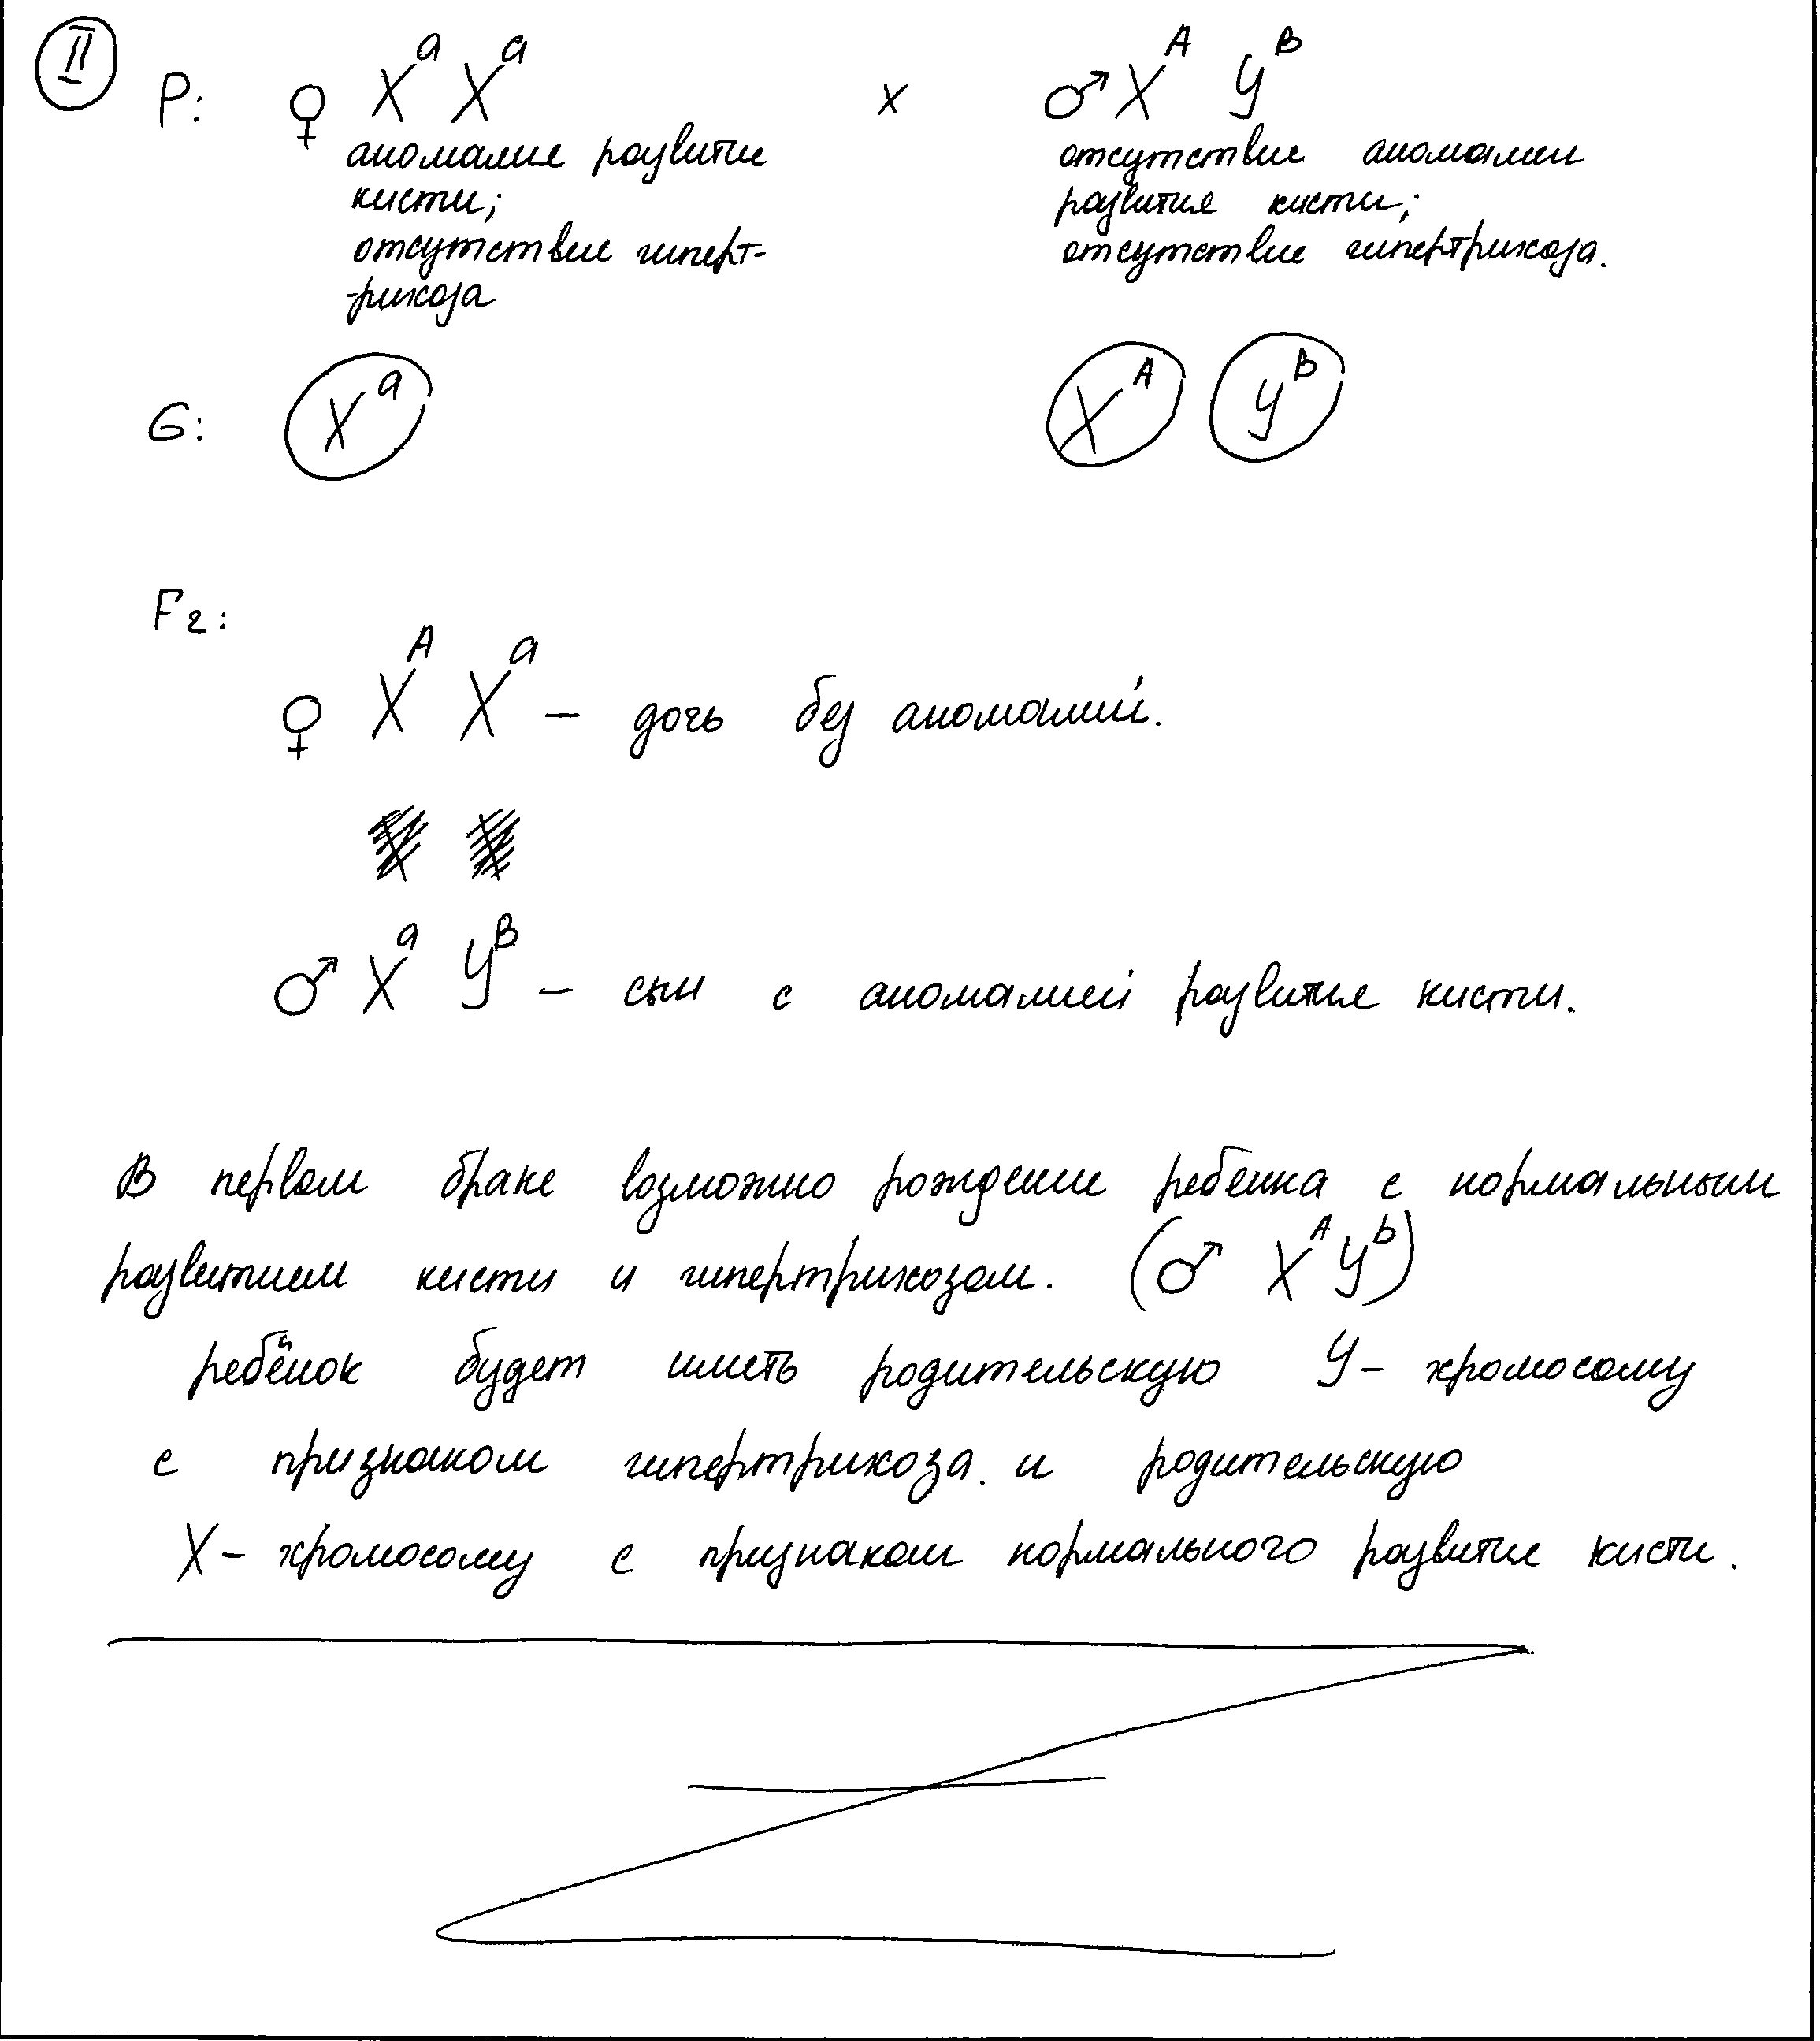 II
P: ♀ XᵃXᵃ x ♂XᴬYᴮ
аномалия развитие отсутствие аномалии
кисти; развития кисти;
отсутствие гиперт- отсутствие гипертрихоза.
-рихоза
G: Xᵃ Xᴬ Yᴮ
F₂:
♀ XᴬXᵃ – дочь без аномалий.
♂ XᵃYᴮ – сын с аномалией развития кисти.
В первом браке возможно рождение ребенка с нормальным
развитием кисти и гипертрихозом. (♂ XᴬYᵇ)
ребёнок будет иметь родительскую Y- хромосому
с признаком гипертрихоза и родительскую
X- хромосому с признаком нормального развития кисти.